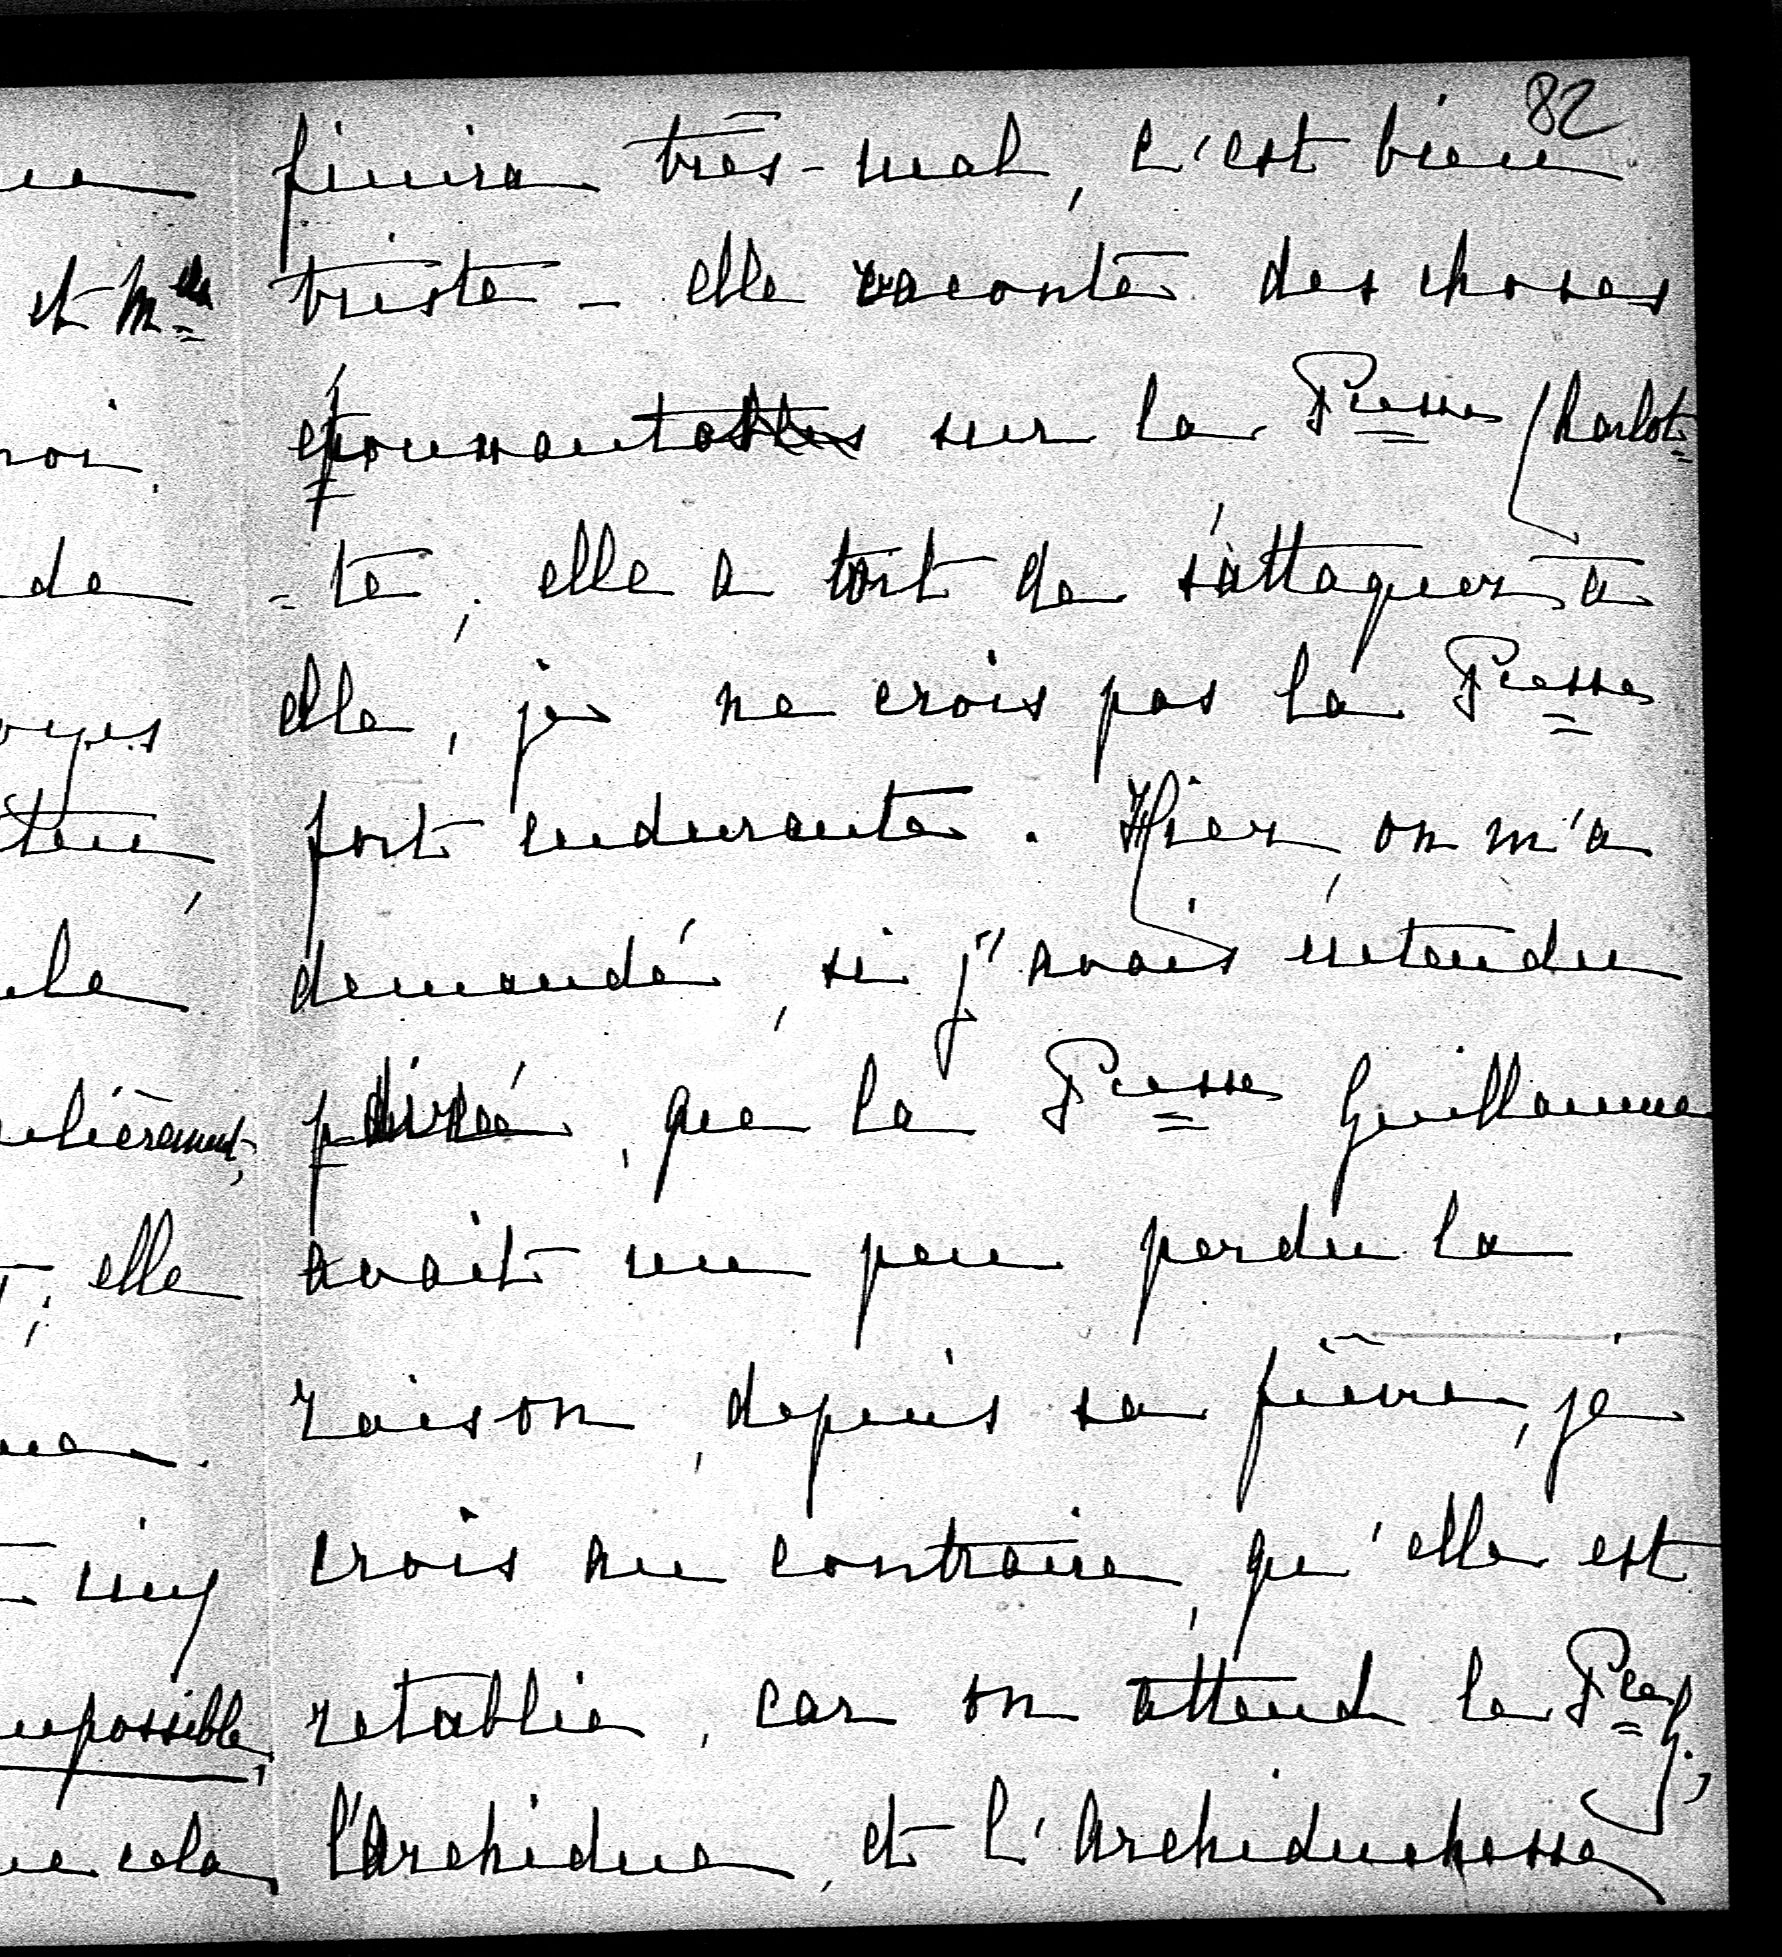 82
finira très-mal, c'est bien
triste - elle raconte des choses
épouvantables sur la P^cesse Charlot-
-te; elle a tort de s'attaquer à
elle, je ne crois pas la P^cesse
fort endurante. Hier, on m'a
demandé, si j'avais entendu
que la P^cesse Guillaume
avait un peu perdu la
raison, depuis sa fièvre, je
crois au contraire, qu'elle est
rétablie, car on attend la P^ce G.,
l'Archiduc, et l'Archiduchesse
et M^de
de
elle
impossible,
cela